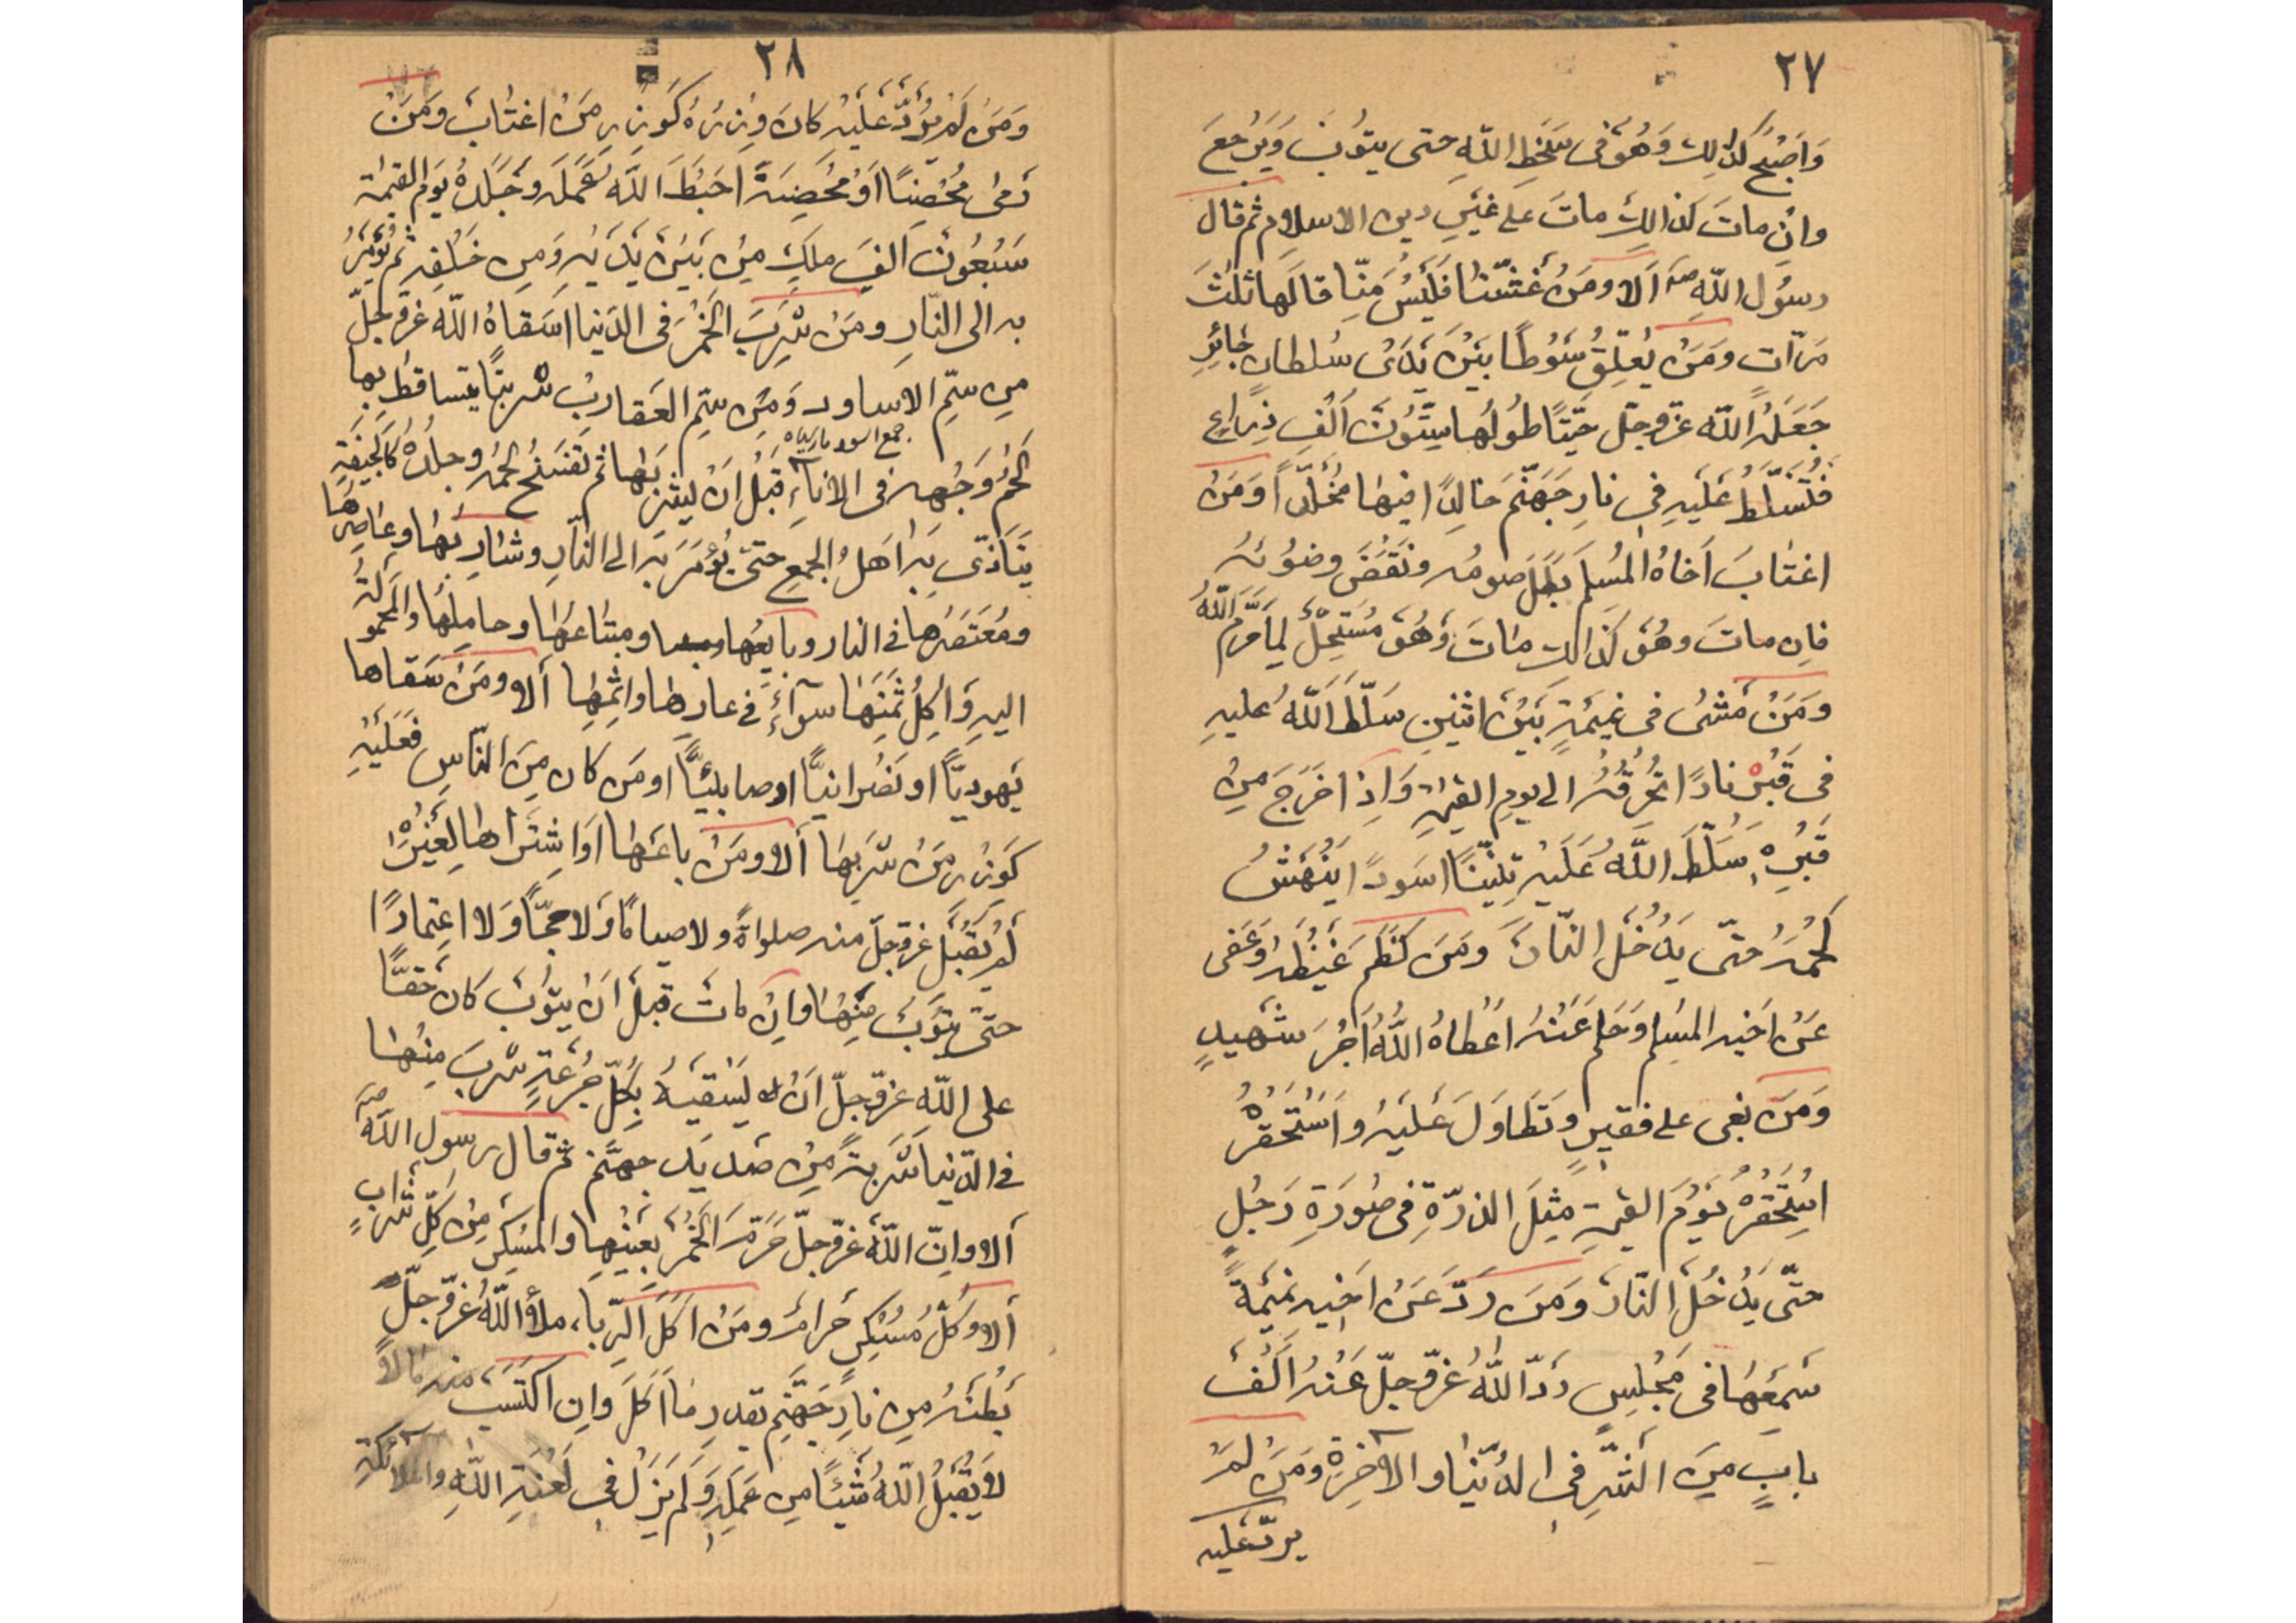 ٢٧
وَاَصْبَحَ كذلك وَهُوَ فى سَخَطِ اللّهِ حتى يتوُبَ وَيَرْجعَ
وان ماتَ كذالِكَ ماتَ على غَيْرِ دين الاسلامِ ثم قال
رسوُل اللّهِ صه اَلا ومَنْ غَشّنا فَلَيْسَ مِنّا قالَها ثلٰثَ
مَرّات ومَنْ يُعلِّقُ سَوْطًا بَيْنَ يَدَىْ سُلطان جٰائِرٍ
جَعَلَهُ اللّه عزّوجلّ حَيّتًا طوُلُها سِتّوُنَ اَلْفِ ذِراعٍ
فتُسَلّطُ عَلَيهِ فِى نارِ جَهَنّمَ خالِدًا فيها مُخَلّدًا وَمَنْ
اغتٰابَ اَخاهُ المُسلِمَ بَطَلَ صومُه ونَقَضَ وضوُئهُ
فاِن ماتَ وهُوَ كَذالك مٰاتَ وَهُوَ مُسْتَحِلٌّ لِمٰا حَرَّمَ اللّٰهُ
ومَنْ مَشىٰ فى نميمَةٍ بَيْنَ اثنينِ سَلّطَ اللّٰهُ عليهِ
فى قَبْرِهِ نارًا تُحْرِقُهُ الى يومِ القيٰمةِ وَاِذا خَرَجَ مِنْ
قَبْرِهِ سَلّطَ اللّٰهُ عَلَيْهِ تِنّينًا اسَودًا يَنْهَشُ
لَحْمَهُ حتّى يَدْخُلَ النّارَ ومَنَ كَظَمَ غَيْظَهُ وَعَفى
عَنْ اخيه المسُلِم وَحَلم عَنْهُ اَعْطاهُ اللّٰهُ اَجْرَ شَهيدٍ
وَمَنْ بَغى على فقيرٍ وتَطٰاوَلَ عَلَيْهِ واَسْتَحْقَرَهُ
اسُتحْقِرَهُ يَوْمَ القيٰمةِ مِثِلَ الذرّةِ فى صُورَةِ رَجُلٍ
حتّى يَدْخُلَ النّارَ وَمَنَ ردّ عَنْ اخيهِ نميْمَةً
سَمِعَهٰا فى مَجْلِسٍ رَدّ اللّٰهُ عزّوجلّ عَنْهُ اَلْفَ
بابٍ مِنَ الشّرِ فِى الدّنيٰا والاٰخِرَةِ ومَنَ لَمْ
يردّ عليه
٢٨
ومَنْ لَمْ يَرُدَّ عَلَيْهِ كانَ وِزْرُهُ كَوِزِرِ مَنْ اغتٰابَ ومَنْ
رَمٰى مُحْصِنًا اَوْ مُحْصِنَةً اَحْبَطَ اللّٰه عَمَلَهُ وجَلَدَهُ يَوْم القيٰمة
سَبْعُونَ اَلفَ ملَكٍ مِنْ بَيْنَ يَدَيْهِ وَمِن خَلفِهِ ثم يُؤمَرُ
به الى النّارِ ومَنْ شَرِبَ الخَمْرَ فى الدّنيا اسَقاهُ اللّه عزّوجلّ
مِن سَمّ الاساود وَمِنَ سَمّ العَقاربَ شربتًا يتساقَطُ بها
جمع اسود مار سياه
لَحْمُ وَجْهِه فى الاناءِ قَبْلَ اَنْ يشْرَبَها ثم تفَسَخُ لحمُه وجلدُهُ كَالجِيفَةِ
يَتَأَذّى بَه اَهلُ الجمعِ حَتىٰ يُؤمَرَ بَه الى النّارِ وشارِبُهٰا وعٰاصِرهٰا
ومُعْتَصِرُها فى النار وبايِعُها ومبتٰاعُهٰا وحامِلُها والمحموُلَةُ
اليهِ وَٰاكِلُ ثَمَنِهَا سوآءٌ فى عارِها واِثمِها اَلا ومَنْ سَقاها
يَهوديًّا او نَصْرانيًّا او صابئيًّا او مَن كان مِنَ النّاسِ فَعَلَيْهِ
كَوِزْرِ مَنْ شَرِبَهٰا اَلا ومَنْ باعَهٰا اَوِ اشتَرٰاها لِغَيْرِهِ
لَمْ يَقْبَلَ عزّوجلّ منه صلواةً ولا صيامًا وَلا حجًّا وَلا اعتمارًا
حتىٰ يتوُبَ مِنْهٰا وان مٰاتَ قبلَ اَنْ يتوُبَ كانَ حقًّا
على اللّهِ عزّوجلّ اَنْ يَسْقيَهُ بِكلّ جُرْعَةٍ شربَ مِنْهٰا
فى الدّنيا شَربةً مِنْ صَديَدِ جهنَّم ثم قال رسول اللّهِ صه
اَلا وانّ اللّٰهَ عزّوجلّ حَرّمَ الخمْرَ بعَيْنِها والمسْكِر مِنْ كلّ شَرابٍ
اَلا وكلُّ مُسْكِرٍ حَرامٌ ومَنْ اَكَلَ الرّبا ملأ اللّٰهُ عزّوجلّ
بَطْنَهُ مِن نارِ جَهَنّمِ بقدرِ مٰا اَكَلَ وَان اكْتَسَبَ منه مٰالاً
لا يَقْبَلُ اللّٰهُ شَيئًا مِن عَمَلِهِ وَلَمْ يَزَلْ فى لَعْنَةِ اللّٰهِ والملائكةِ